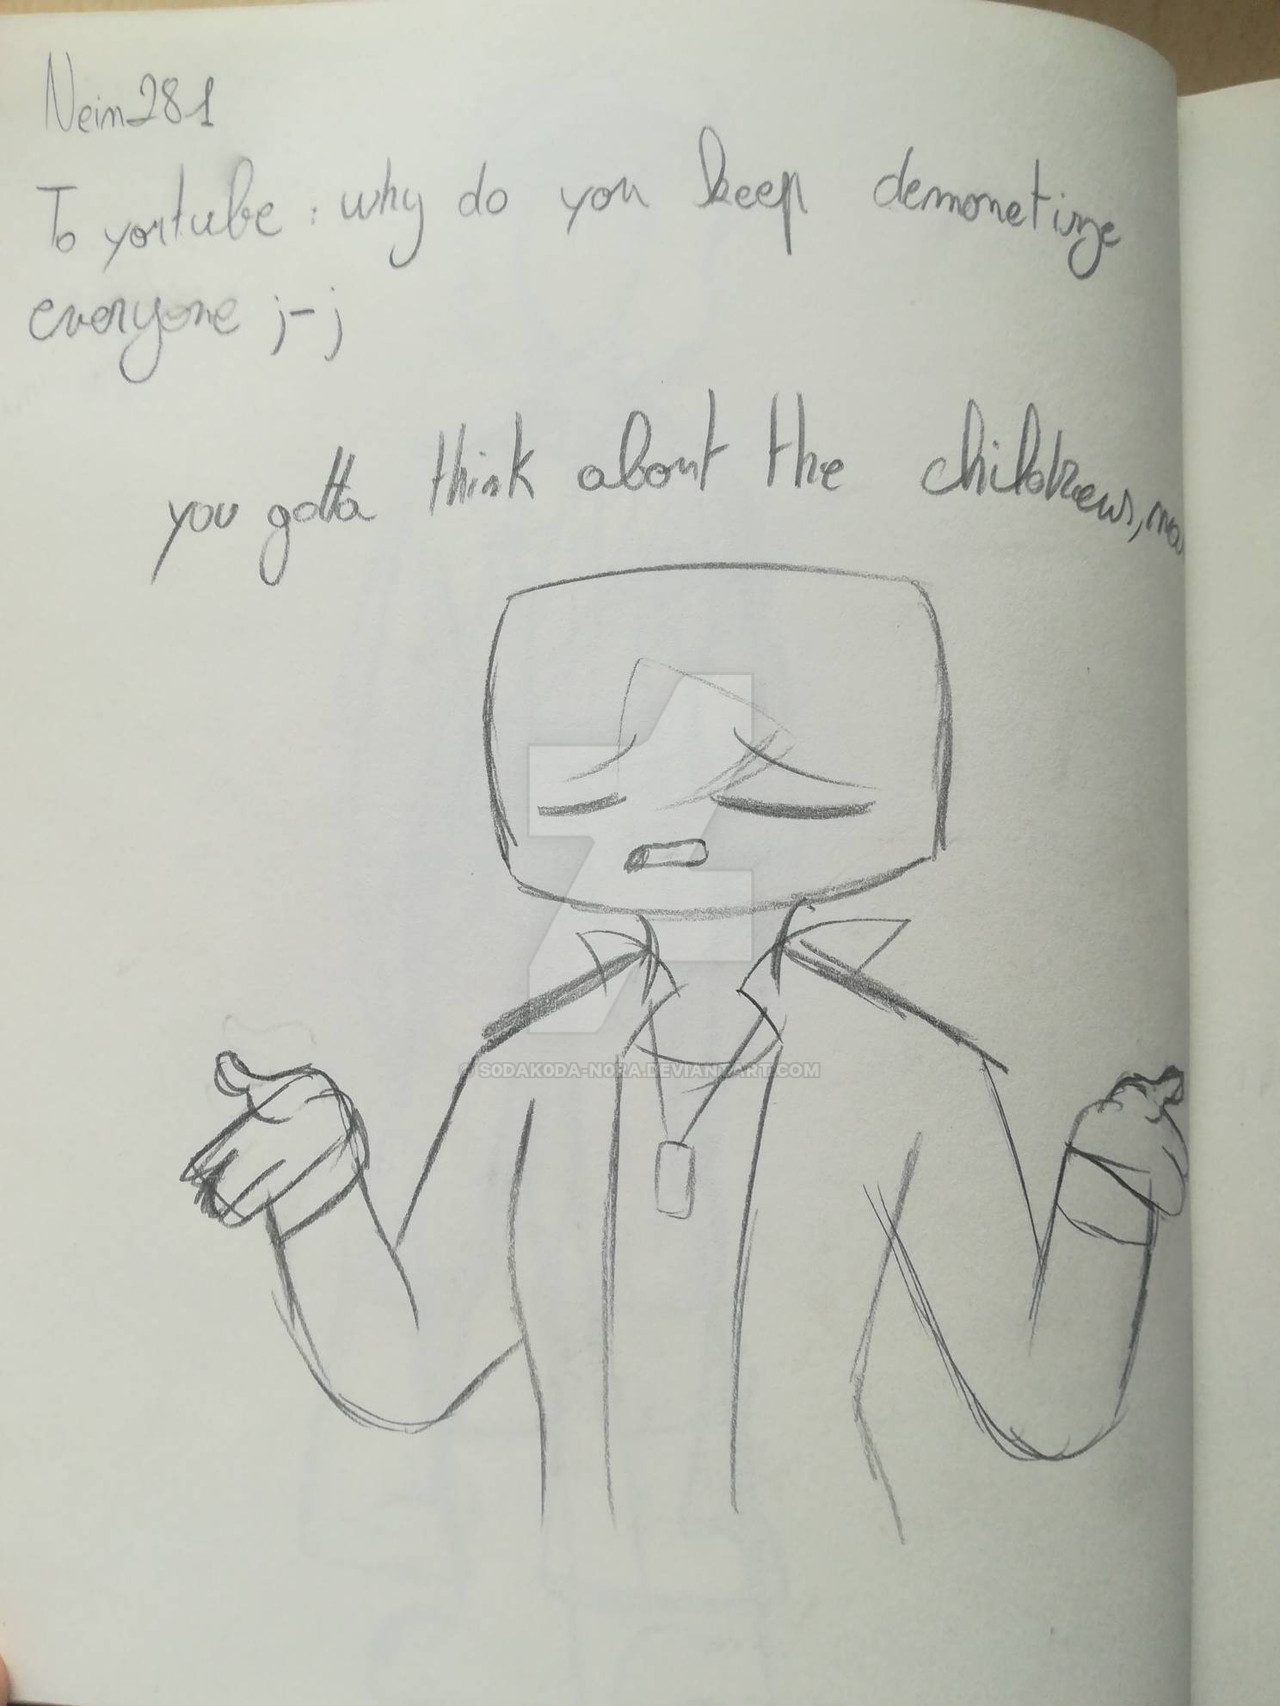 Nein281
To youtube : why do you keep demonetize
everyone ;-;
you gotta think about the childrens,
S0DAK0DA-N0RA.DEVIANTART.COM